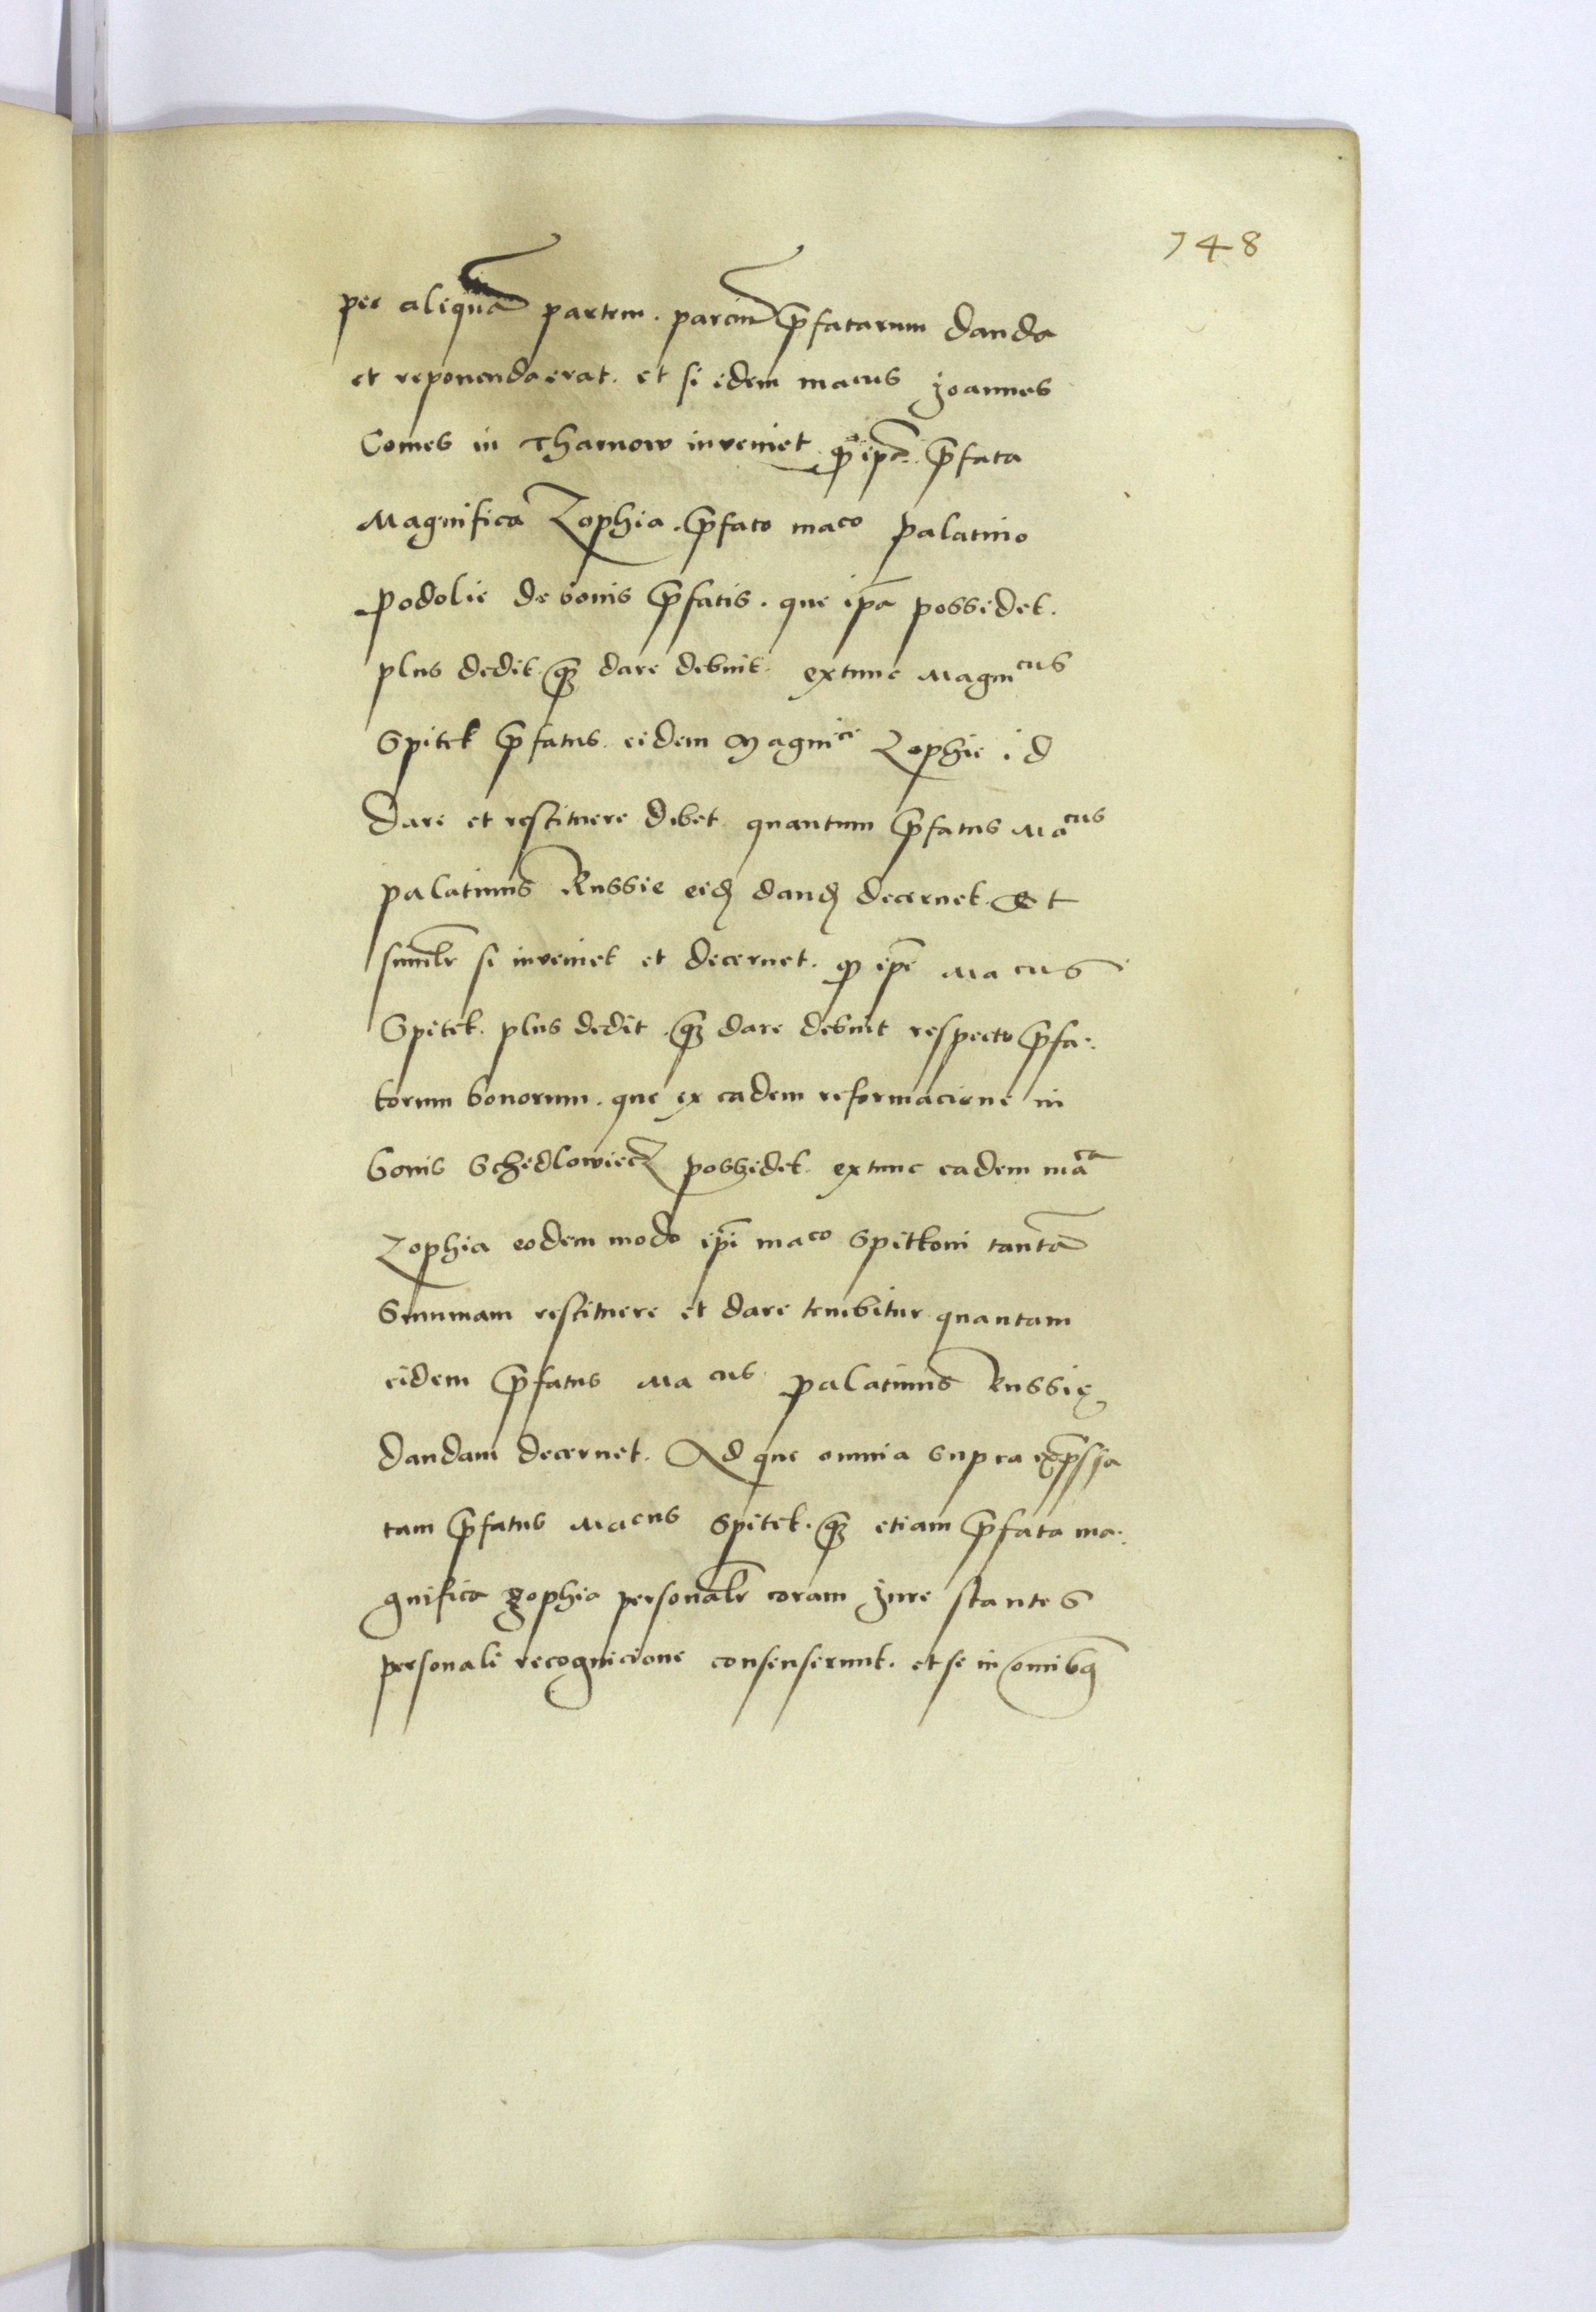 748
per aliquã partem. parciũ p̃fatarum danda
et reponenda erat. et si idem macus Joannes
Comes in Tharnow inveniet. qͥ ip̃a. p̃fata
Magnifica Zophia. p̃fato maco palatino
podolie de bonis p̃fatis. que ip̃a possidet.
plus dedit. qȝ dare debuit. extunc Magnicus
Spitek p̃fatus. eidem Magnice Zophie id
dare et restituere debet. quantum p̃fatus Macus
palatinus Russie eidꝫ dandꝫ decernet. Et
similr̃ si inveniet et decernet. ꝙ ip̃e Macus
Spitek. plus dedit. qȝ dare debuit respectu p̃fa:
torum bonorum. que ex eadem reformacione in
bonis Schedlowiecz possidet. extunc eadem mãca
Zophia eodem modo ip̃i maco Spitkoni tantã
Summam restituere et dare tenebitur quantam
eidem p̃fatus Macus palatinus Russię
dandam decernet. Ad que omnia supra exp̃ssa
tam p̃fatus Macus Spitek. qȝ etiam p̃fata ma:
gnifica Zophia personalr̃ coram Jure stantes
personali recognicione consenserunt. et se in om̃ibꝫ